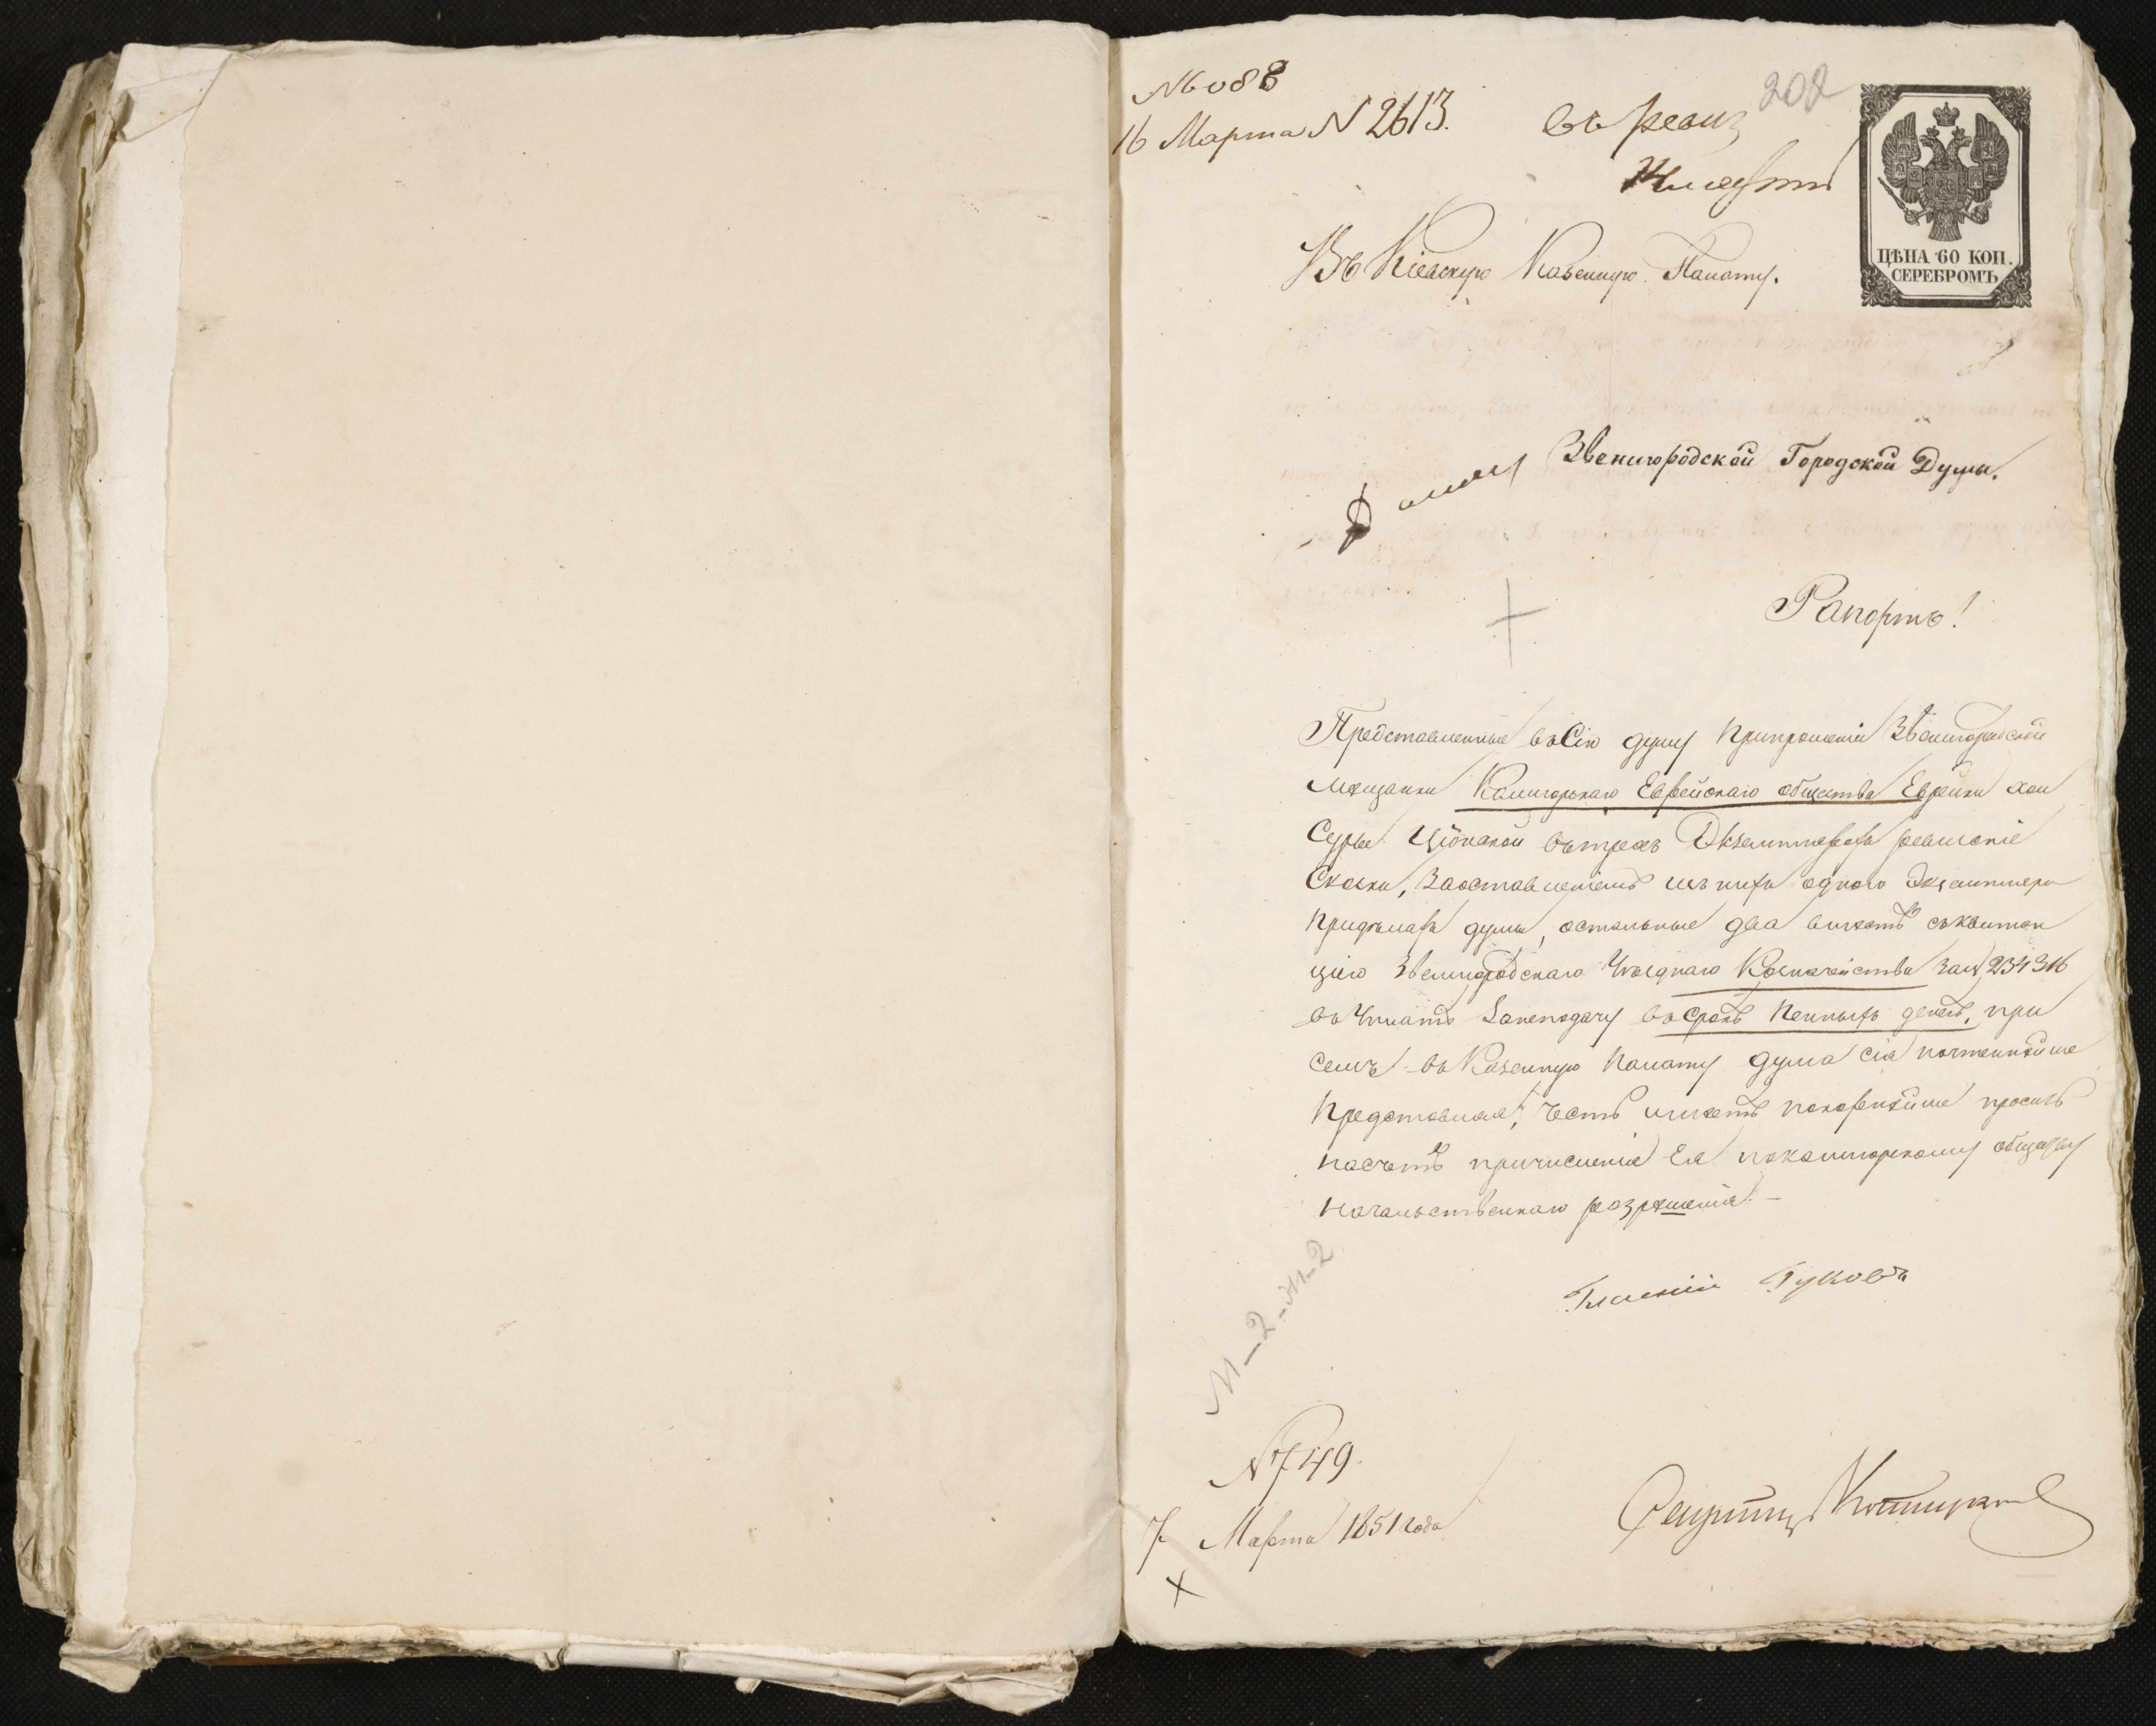 № 6088
16 Марта N 2613.
202
въ ревиз
ЦѢНА 60 КОП.
СЕРЕБРОМЪ
Въ Кіевскую Казенную Палату.
Звенигородской Городской Думы.
Рапортъ!
Представленные въ Сію думу при прошеніи Звенигородской
мещанки Калигорскаго Еврейскаго общества Еврейки Хаи
Суры въ трехъ Экземплярахъ ревизскіе
Сказки, за оставленіемъ изъ нихъ одного Экземпляра
при дѣлахъ думы, остальные два вместѣ съ квитан
ціею Звенигородскаго Уѣзднаго Казначейства за N 234316
въ Уплатѣ За неподачу въ срокъ пенныхъ денегъ, при
семъ въ Казенную Палату дума сія почтеннѣйше
Представляя, честь имѣетъ покорнѣйше просить
насчетъ причисленія Ея по калигорскому обществу
начальственнаго разрѣшенія. —
Гласній Гуковъ
М–2–Ж–2
N 749.
7 Марта 1851 года